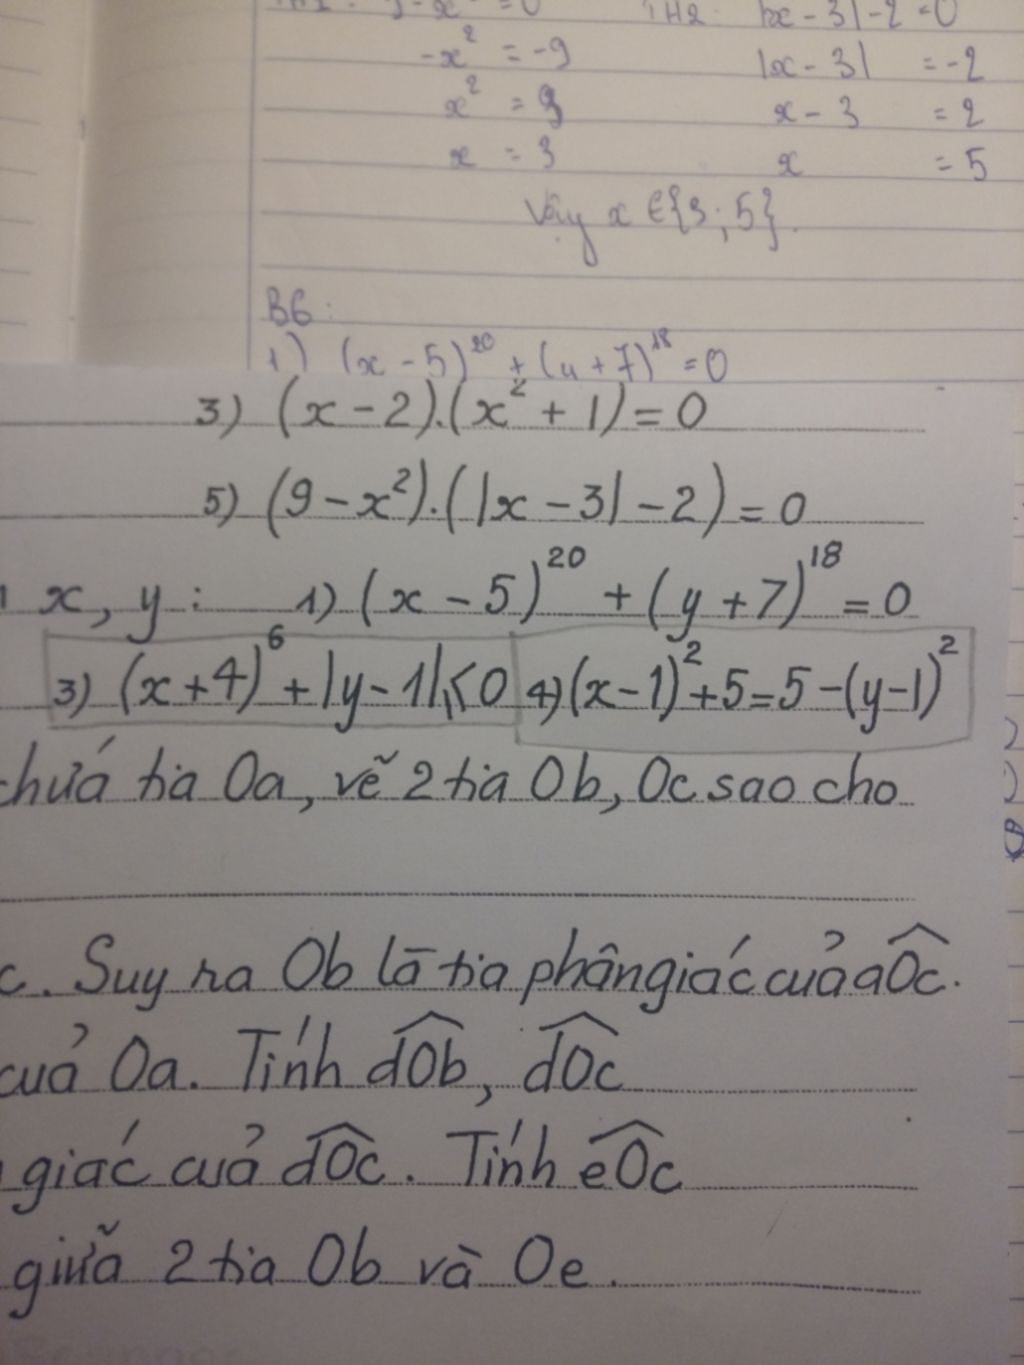 = 0 TH2: |x - 3| - 2 = 0
-x² = -9 |x - 3| = -2
x² = 9 x - 3 = 2
x = 3 x = 5
Vậy x ∈ {3; 5}.
B6:
1) (x - 5)²⁰ + (y + 7)¹⁸ = 0
3) (x - 2).(x² + 1) = 0
5) (9 - x²).(|x - 3| - 2) = 0
x, y: 1) (x - 5)²⁰ + (y + 7)¹⁸ = 0
3) (x + 4)⁶ + |y - 1| ≤ 0 4) (x - 1)² + 5 = 5 - (y - 1)²
chứa tia Oa, vẽ 2 tia Ob, Oc sao cho
c. Suy ra Ob là tia phân giác của aOc.
của Oa. Tính dOb, dOc
giác của dOc. Tính eOc
giữa 2 tia Ob và Oe.